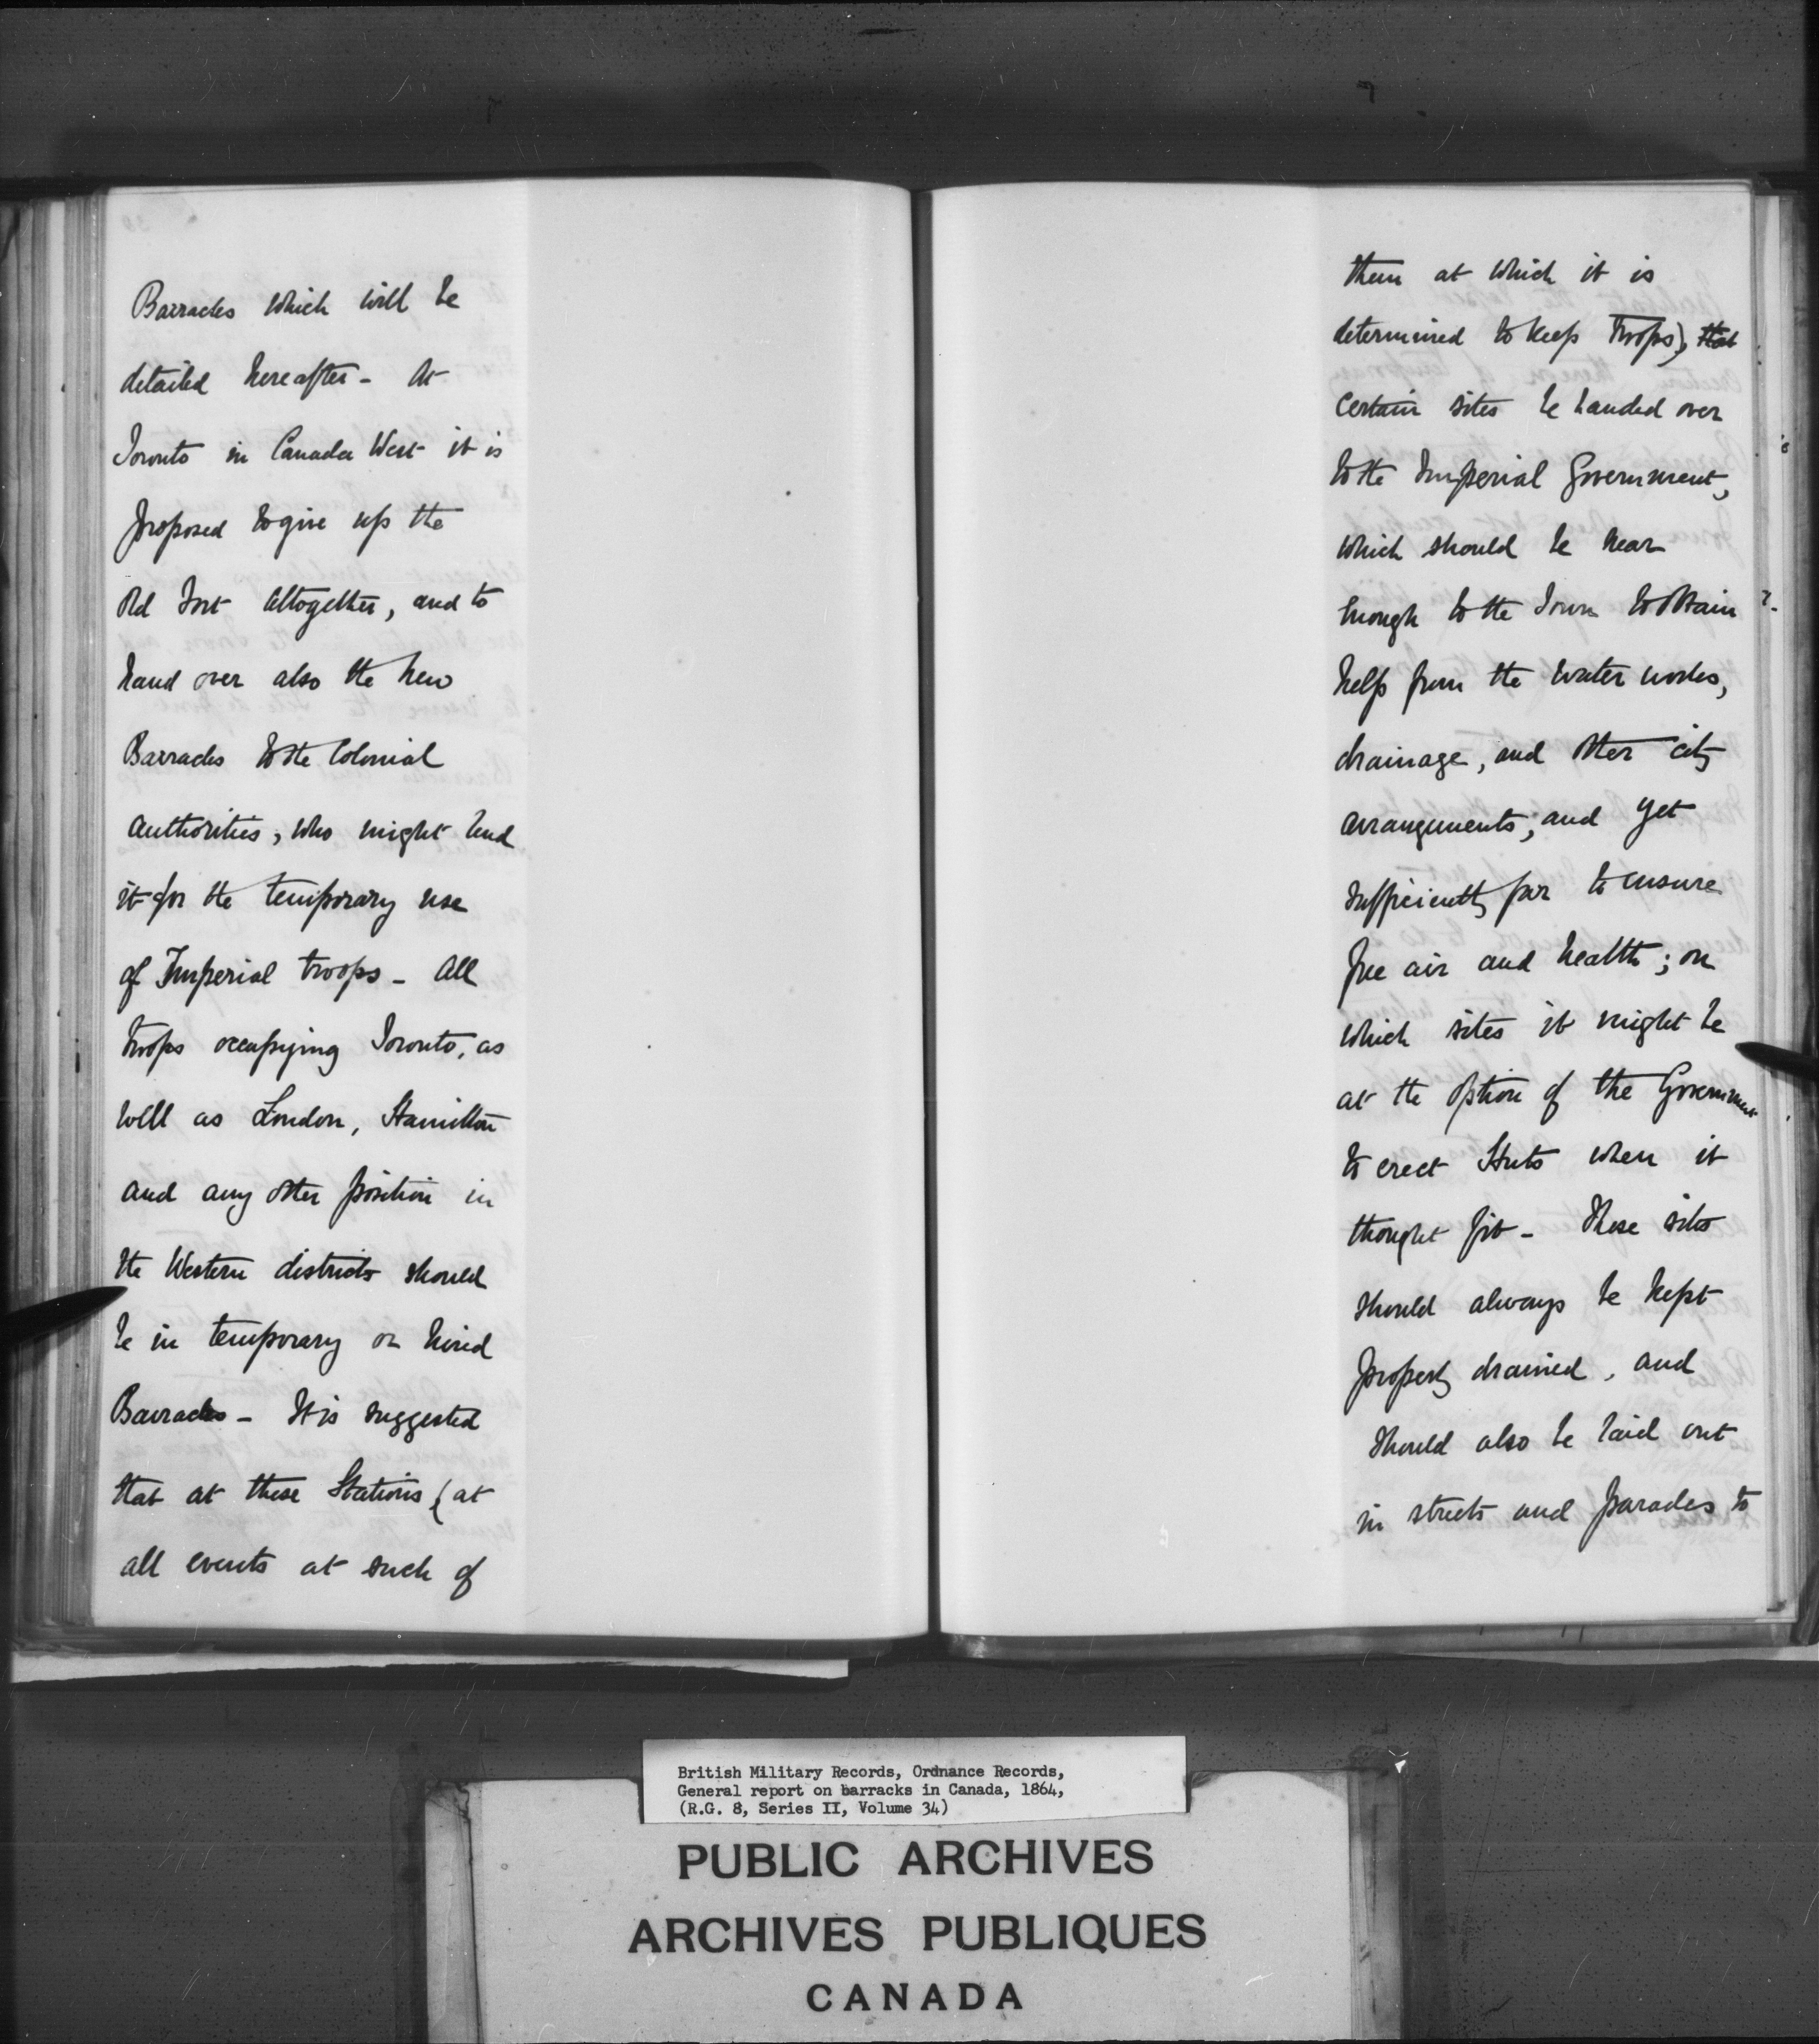 Barracks which will be
detailed hereafter - At
Toronto in Canada West it is
proposed to give up the
old Fort altogether, and to
hand over also the new
Barracks to the Colonial
authorities, who might lend
it for the temporary use
of Imperial troops - All
troops occupying Toronto, as
well as London, Hamilton
and any other position in
the Western districts should
be in temporary or hired
Barracks - It is suggested
that at these Stations (at
all events at such of
them at which it is
determined to keep Troops), that
certain sites be handed over
to the Imperial Government,
which should be near
enough to the Town to obtain
help from the water works,
drainage, and other city
arrangements, and yet
sufficiently far to ensure
free air and health; on
which sites it might be
at the option of the Government
to erect Huts when it
thought fit - These sites
should always be kept
properly drained, and
should also be laid out
in streets and parades to
British Military Records, Ordnance Records,
General report on barracks in Canada, 1864,
(R.G. 8, Series II, Volume 34)
PUBLIC ARCHIVES
ARCHIVES PUBLIQUES
CANADA